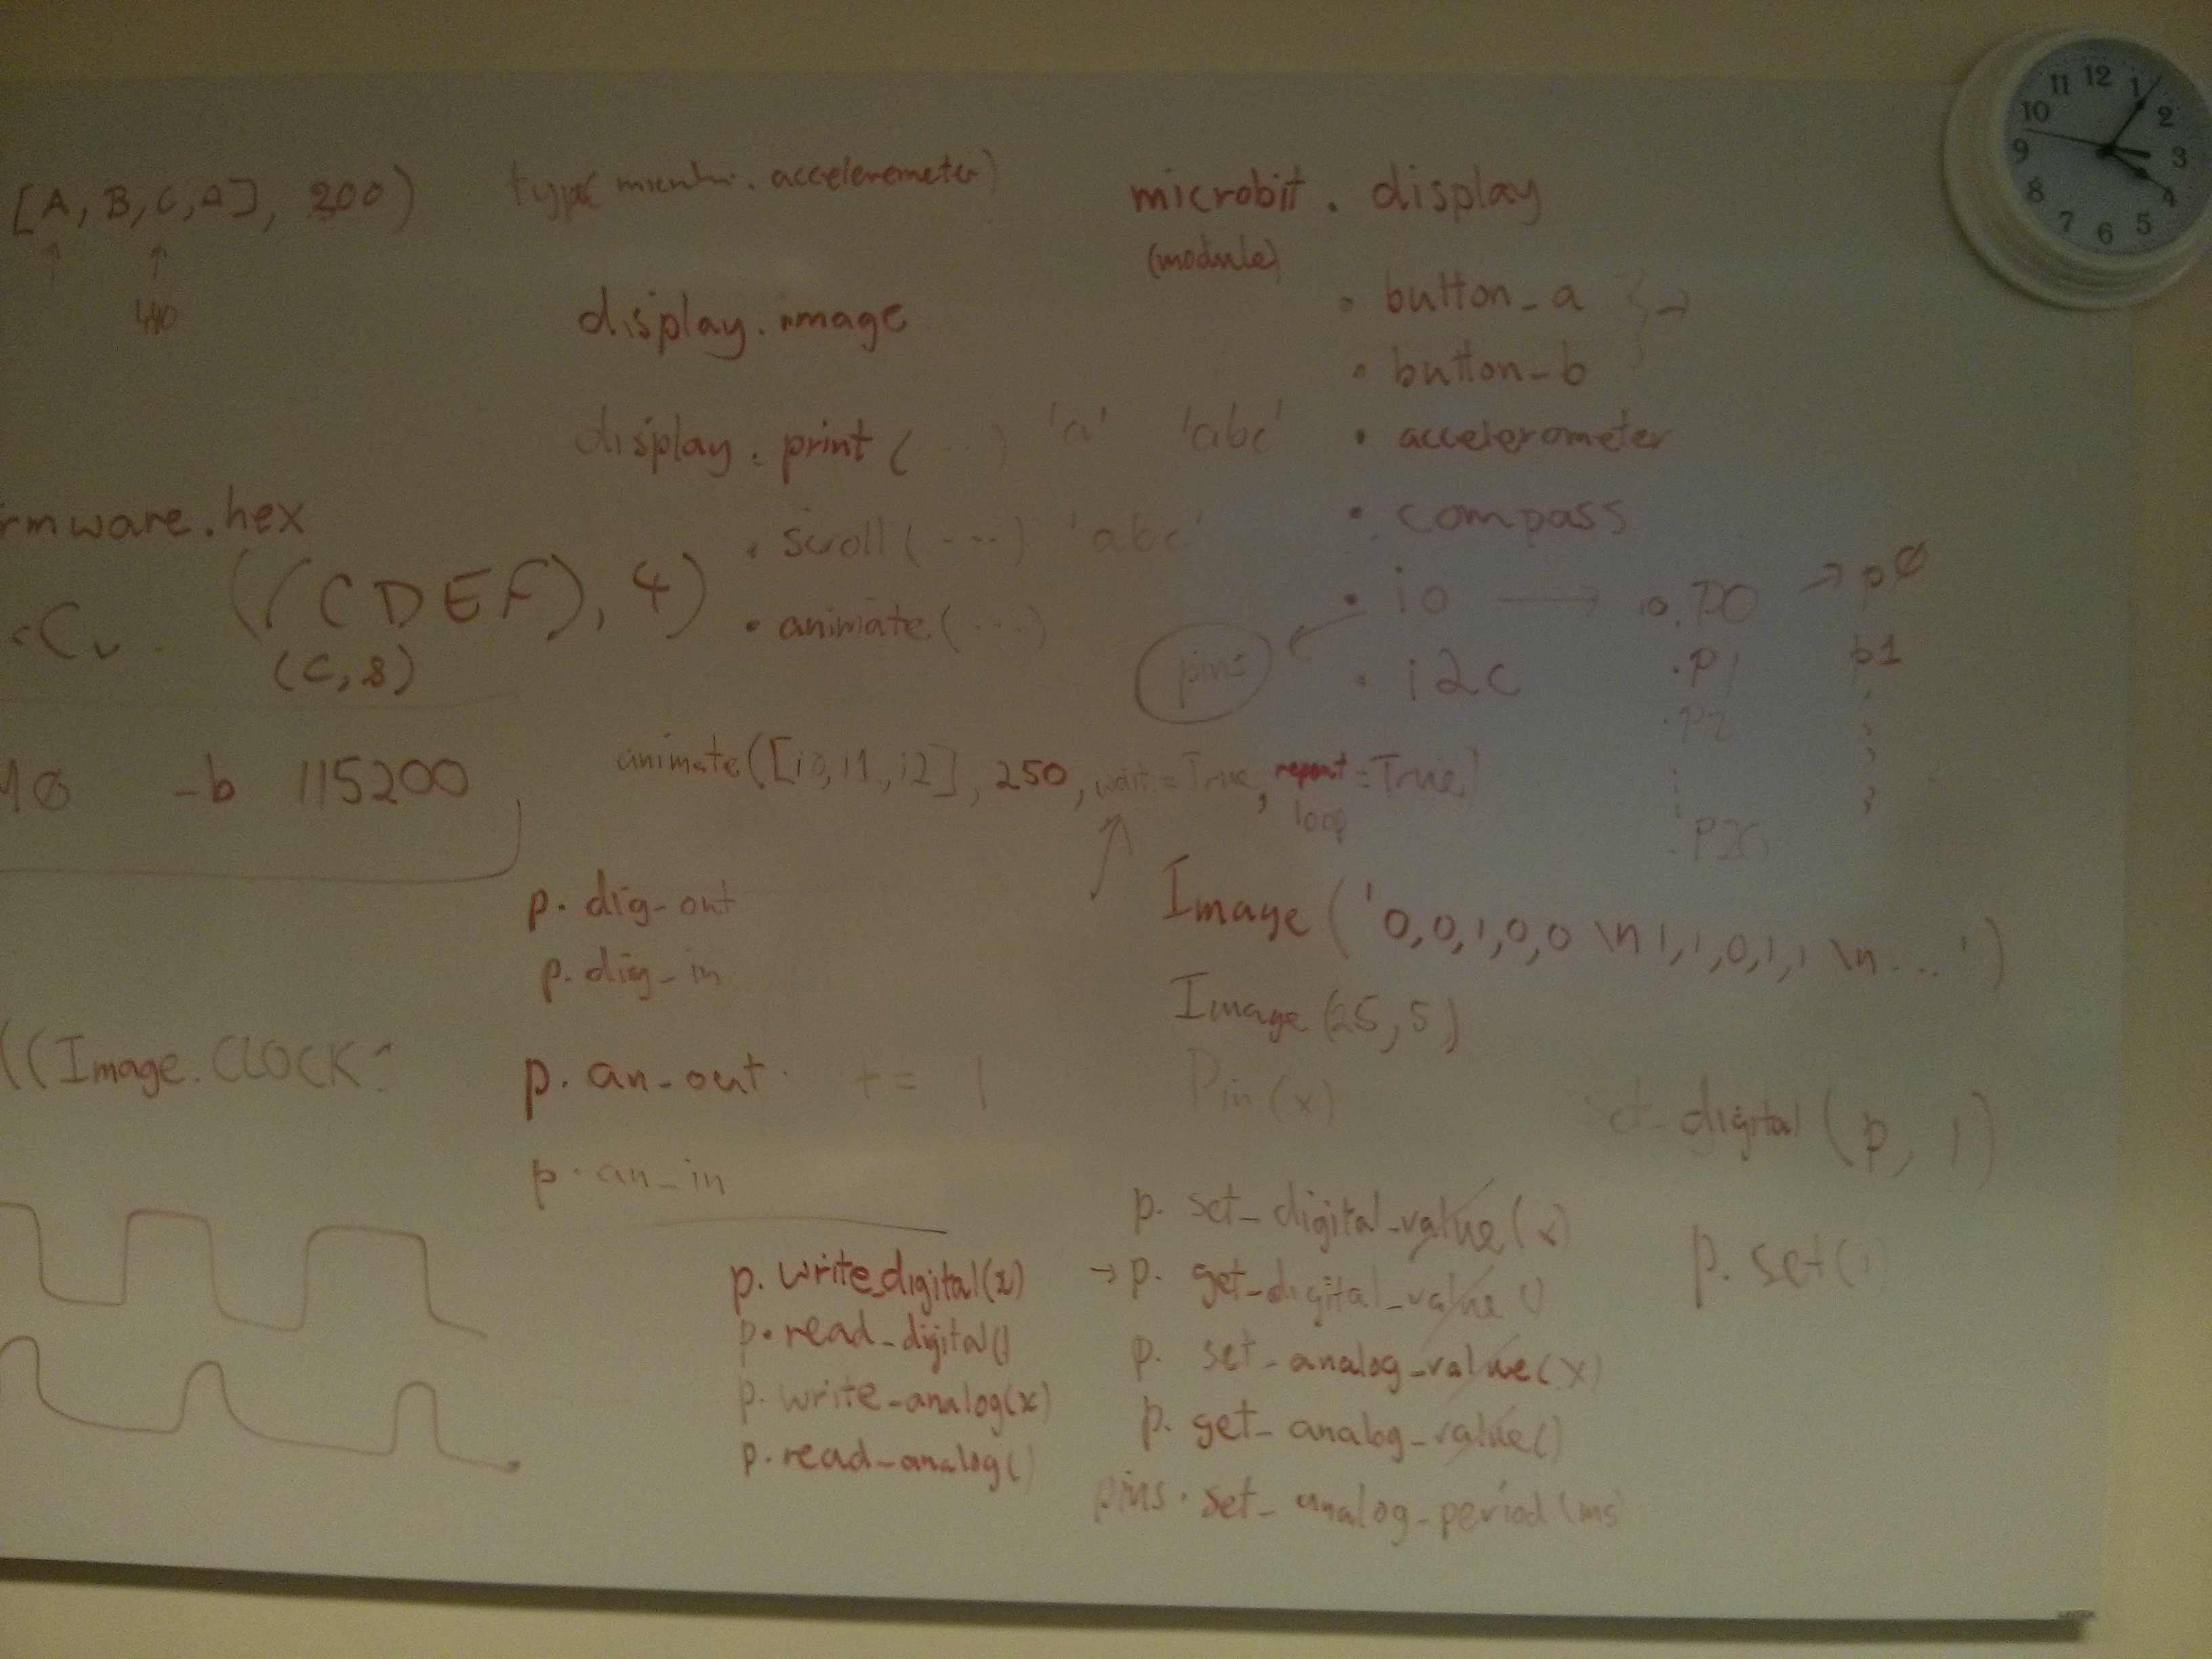 [A, B, C, A], 200)
440
type( . accelerometer)
microbit . display
(module)
display.image
• button_a
• button_b
display.print(...) 'a' 'abc'
• accelerometer
rmware.hex
. scroll(----) 'abc'
• compass
((CDEF), 4)
(C,8)
• animate(...)
• io → .P0 → pØ
pins
• i2c
.P1 p1
.P2
P20
1Ø -b 115200
animate([i0,i1,i2], 250, wait=True, repeat=True)
loop
p. dig-out
p. dig-in
Image('0,0,1,0,0 \n 1,1,0,1,1 \n ... ')
Image(25,5)
((Image.CLOCK
p. an-out += 1
Pin(x)
digital(p, 1)
p. an-in
p. set_digital_value(x)
→ p. get_digital_value()
p. set_analog_value(x)
p. get_analog_value()
pins. set_analog_period(ms
p. set(
p. write_digital(x)
p. read_digital()
p. write_analog(x)
p. read_analog()
11 12 1
10 2
9 3
8 4
7 6 5